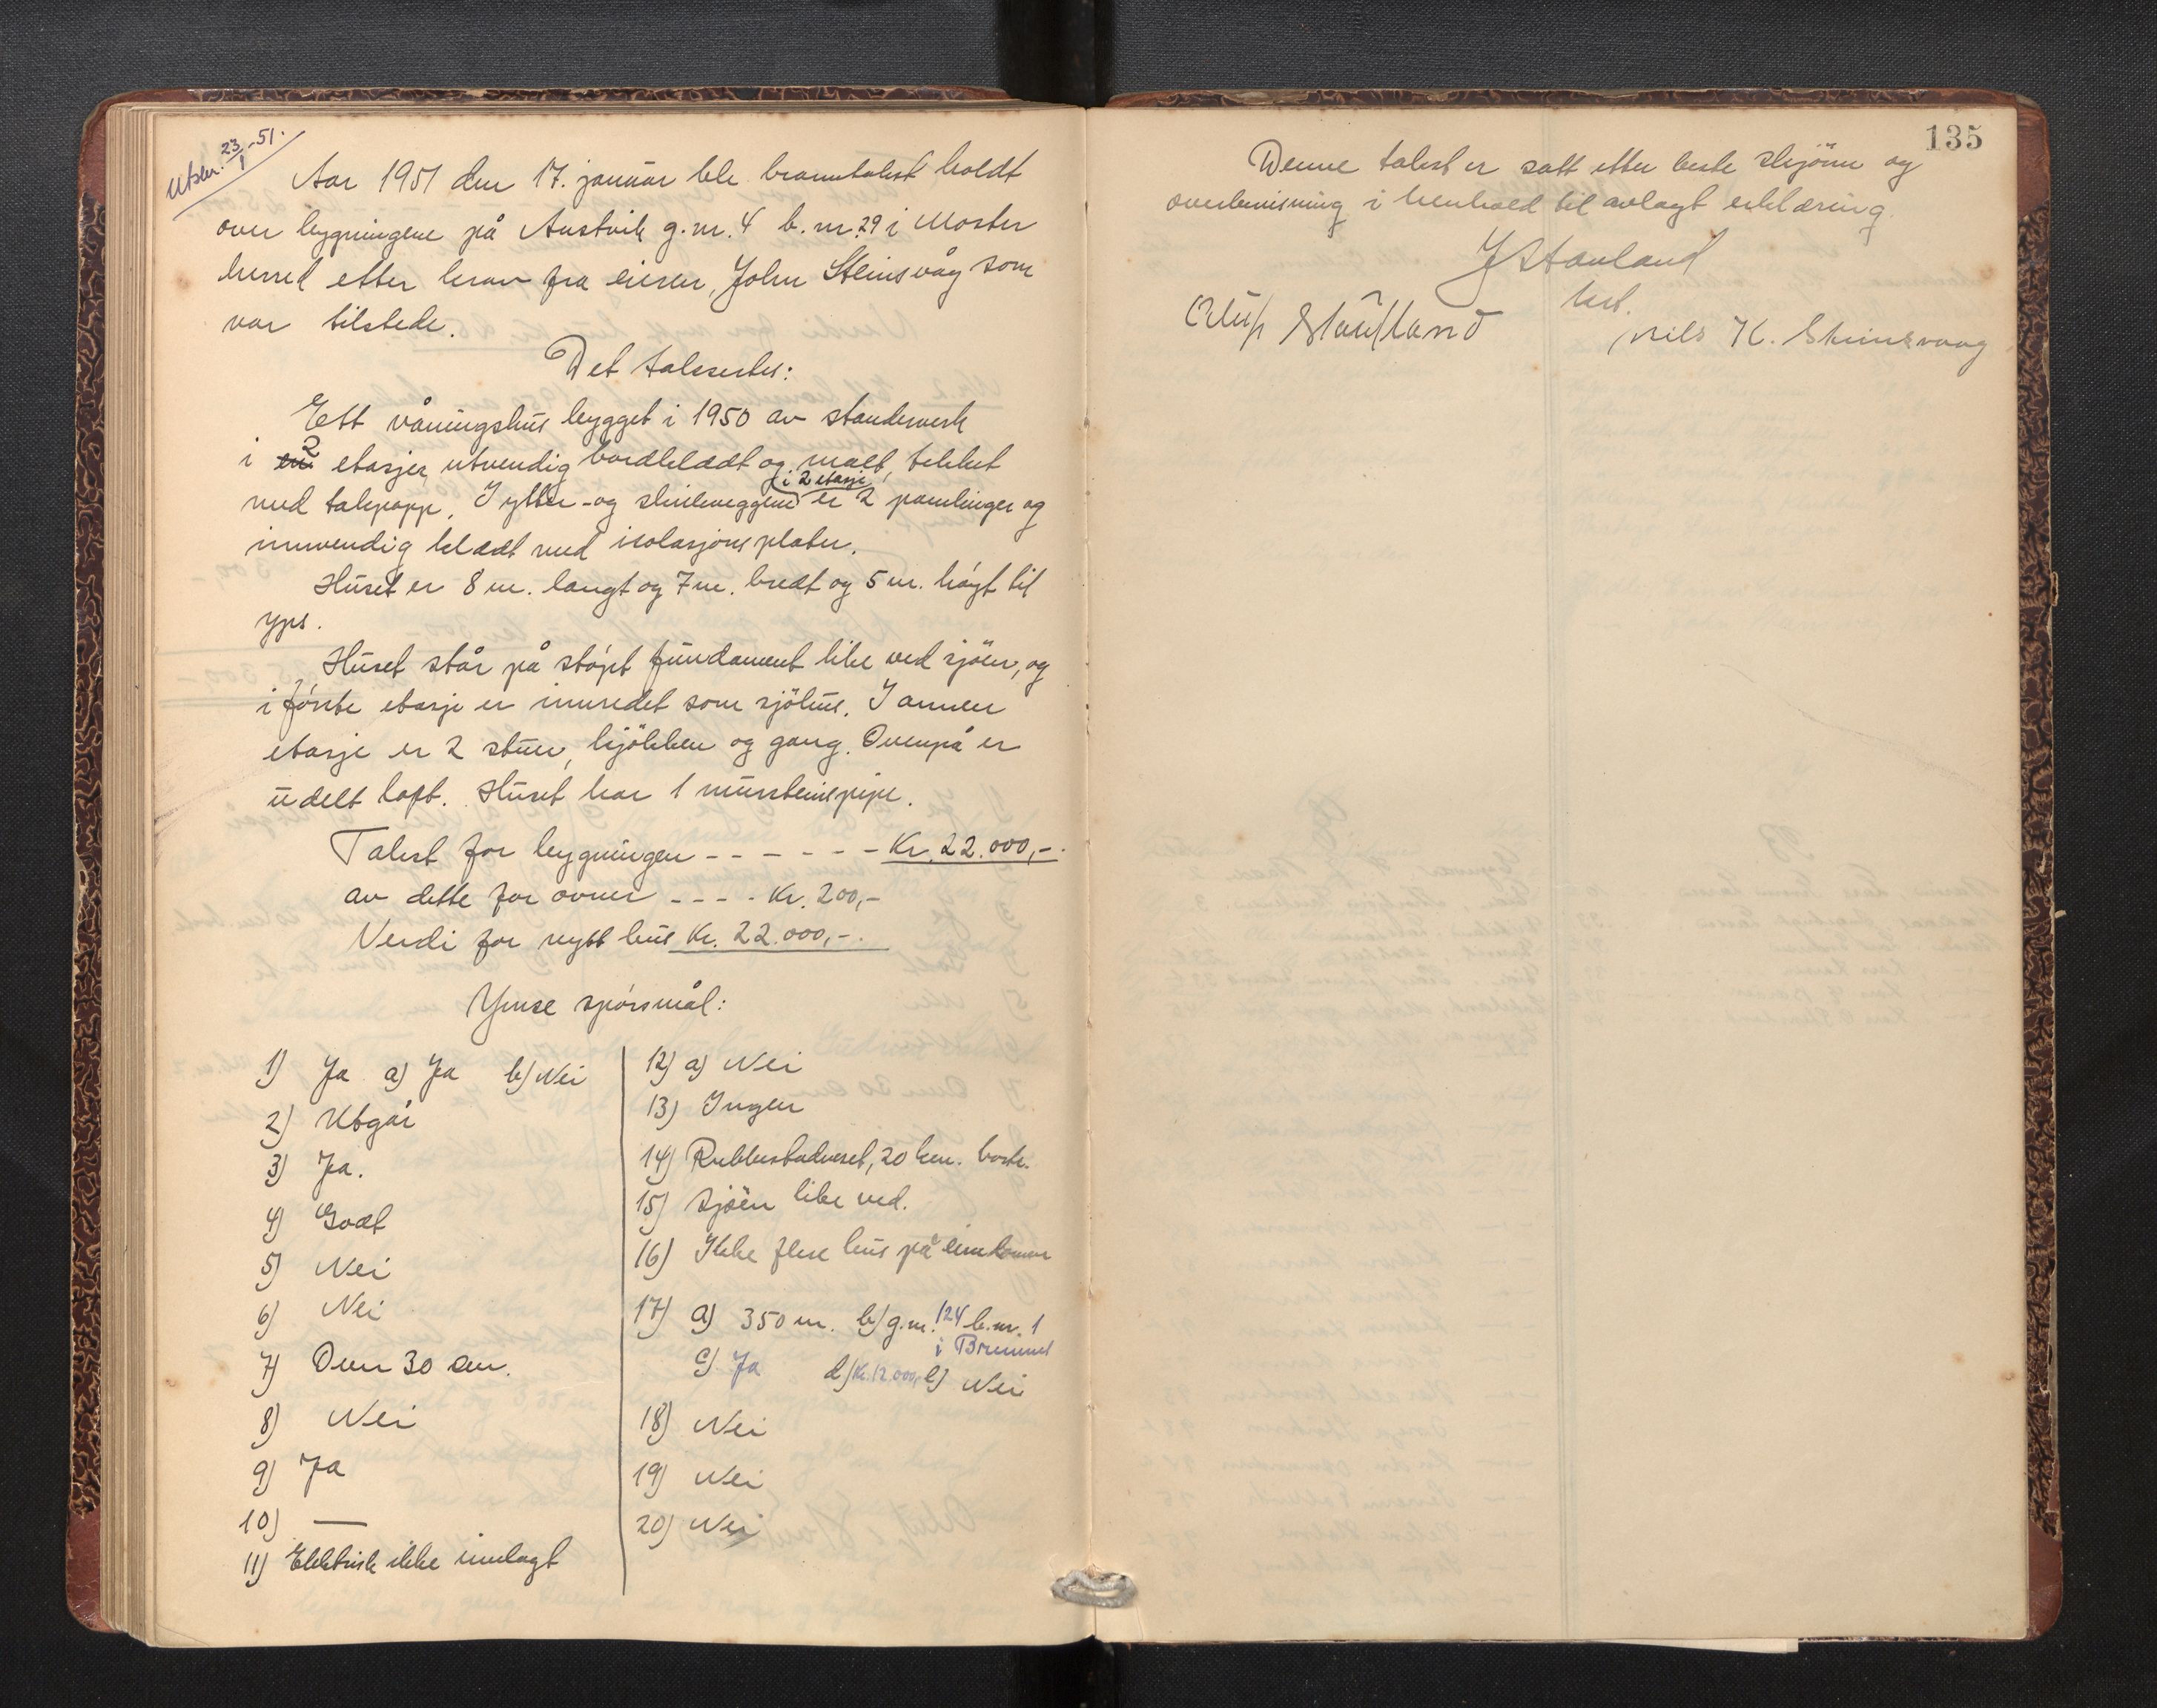 Utskr. 23/1-51.
Aar 1951 den 17. januar ble branntakst holdt
over bygningene på Austvik g.nr. 4 b.nr. 29 i Moster
herred etter krav fra eieren, John Steinsvåg som
var tilstede.
Det takseres:
Ett våningshus bygget i 1950 av standerverk
i 2 etasjer utvendig bordklædt og malt, tekket
med takpapp. I ytter- og skilleveggene i 2 etasje er 2 pamlinger og
innvendig klædt med isolasjonsplater.
Huset er 8 m. langt og 7 m. bredt og 5 m. høgt til
yps.
Huset står på støpt fundament like ved sjøen, og
i første etasje er innredet som sjøhus. I annen
etasje er 2 stuer, kjøkken og gang. Ovenpå er
udelt loft. Huset har 1 mursteinspipe.
Takst for bygningen - - - - - - Kr. 22.000,-.
av dette for ovner - - - - Kr. 200,-
Verdi for nytt hus Kr. 22.000,-.
Ymse spørsmål:
1) Ja a) Ja b) Nei
2) Utgår
3) Ja.
4) Godt
5) Nei
6) Nei
7) Over 30 cm.
8) Nei
9) Ja
10) —
11) Elektrisk ikke innlagt
12) a) Nei
13) Ingen
14) Rubbestadneset, 20 km. borte.
15) Sjøen like ved.
16) Ikke flere hus på eiendommen
17) a) 350 m. b) g.nr. 124 b.nr. 1
i Bremnes
c) Ja d) Kr. 12.000,- e) Nei
18) Nei
19) Nei
20) Nei
135
Denne takst er satt etter beste skjønn og
overbevisning i henhold til avlagt erklæring.
J Stavland
lest.
Olus Stautland
Nils K. Steinsvaag